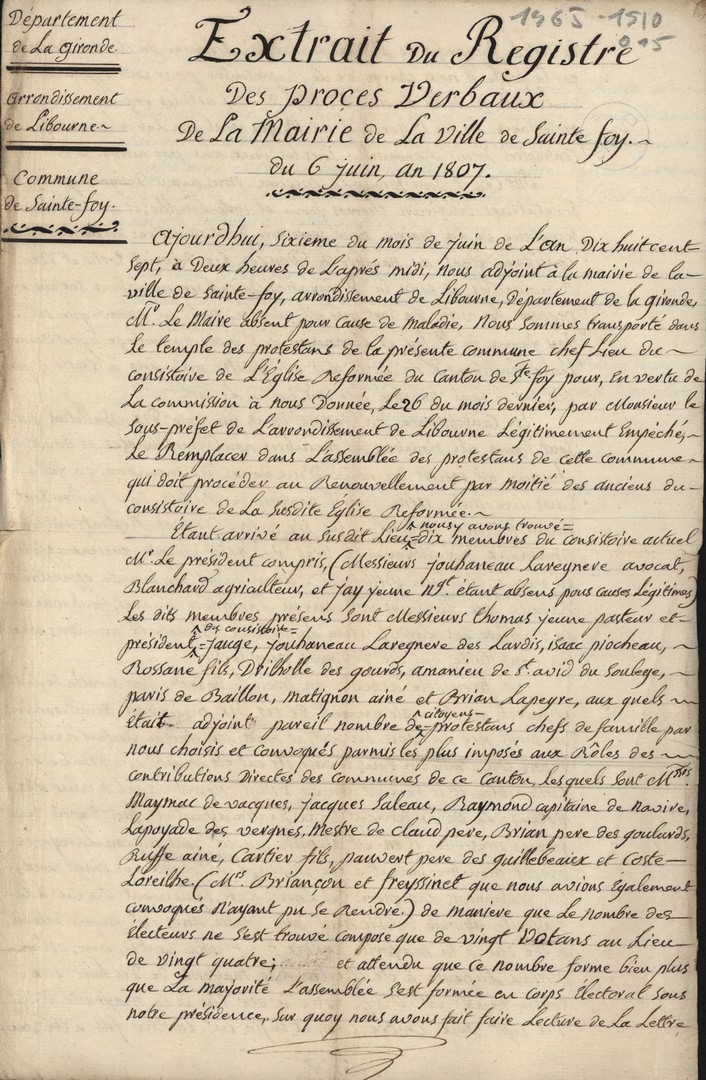 Département
de La Gironde
Arrondissement
de Libourne~
Commune
de Sainte-foy.
1965-1510
015
Extrait Du Registre
Des Proçes Verbaux
De La Mairie de La Ville de Sainte foy.~
du 6 juin, an 1807.
Ajourdhui, Sixieme du mois de juin de L'an Dix huit cent
Sept, à Deux heures de L'aprés midi, nous adjoint à la mairie de la-
ville de Sainte-foy, arrondissement de Libourne, Département de la gironde,
Mr. Le Maire absent pour Cause de maladie, Nous Sommes transporté dans
Le temple des protestans de la présente commune chef Lieu du~
Consistoire de L'Église Reformée du Canton de Ste foy pour, En vertu de
La commission à nous Donnée, Le 26 du mois dernier, par Monsieur le
Sous-prefet de L'arrondissement de Libourne Légitimement Empêché,~
Le Remplacer dans L'assemblée des protestans de cette commune~
qui doit procéder au Renouvellement par moitié des anciens du-
Consistoire de La Susdite Église Reformée.~
Étant arrivé au Susdit Lieu =nous y avons trouvé= dix membres du Consistoire actuel
Mr. Le président compris, (Messieurs jouhaneau Laregnere avocat,
Blanchard agriculteur, et jay jeune Ngt. étant absens pour causes Légitimes)
Les dits membres présens Sont Messieurs thomas jeune pasteur et-
président =du consistoire= jauge, jouhaneau Laregnere des Lardis, isaac piocheau,~
Rossane fils, Drilholle des gourds, amanieu de St. avid du Soulege,~
paris de Baillon, Matignon ainé et Brian Lapeyre, aux quels~
était adjoint pareil nombre de =citoyens= protestans chefs de famille par
nous choisis et Convoqués parmis les plus imposés aux Rôles des~
Contributions Directes des communes de ce Canton, lesquels sont Mssrs.
Maymac de vacques, jacques Saleau, Raymond capitaine de navire,
Lapoyade des vergnes, Mestre de Claud pere, Brian pere des goulards,
Ruffe ainé, Cartier fils, pauvert pere des guillebeaiex et Coste-
Loreilhe. (Mrs. Briançon et freyssinet que nous avions Également
Convoqués N'ayant pu Se Rendre.) de maniere que Le nombre des-
Électeurs ne S'est trouvé Composé que de vingt Votans au Lieu
de vingt quatre; et attendu que ce nombre forme bien plus
que La majorité L'assemblée S'est formée en corps Électoral Sous
notre présidence, Sur quoy nous avons fait faire Lecture de La Lettre